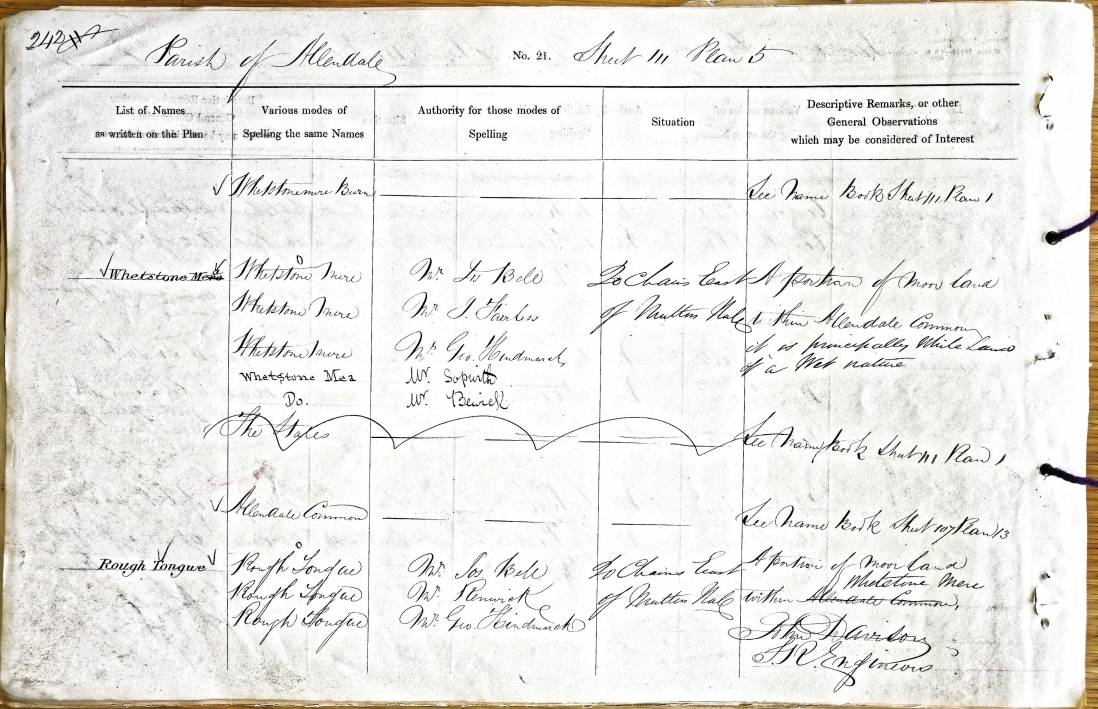 242
Parish of Allendale No. 21. Sheet 111 Plan 5
List of Names
as written on the Plan
Various modes of
Spelling the same Names
Authority for those modes of
Spelling
Situation
Descriptive Remarks, or other
General Observations
which may be considered of Interest
Whetstonemere Burn See Name Book Sheet 111 Plan 1
Whetstone Mere Whetstone Mere Mr. Jos Bell 20 Chains East A portion of moor land
Whetstone Mere Mr. J. Fairless of Mutton Hall within Allendale Common
Whetstone Mere Mr. Geo. Hindmarch it is principally White Land
Whetstone Mea Mr. Sopwith of a Wet nature
Do. Mr. Bewick
The States See Name Book Sheet 111 Plan 1
Allendale Common See Name Book Sheet 107 Plan 13
Rough Tongue Rough Tongue Mr. Jos Bell 20 Chains East A portion of moor land
Rough Tongue Mr. Renwick of Mutton Hall within Allendale Common, Whetstone Mere
Rough Tongue Mr. Geo. Hindmarch
John Davison
S.R. Engineers